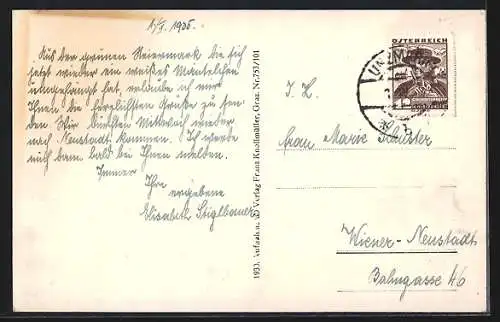 1./I. 1935.
Aus der grünen Steiermark die sich
jetzt wieder ein weißes Mantelchen
umgehängt hat, erlaube ich mir
Ihnen die herzlichsten Grüße zu sen
den. Wir dürften Mittwoch wieder
nach Neustadt kommen. Ich werde
mich dann bald bei Ihnen melden.
Immer
Ihre
ergebene
Elisabeth Stiglbauer
1933. Aufnahme u. Verlag Franz Knollmüller, Graz. Nr. 257/101
ÖSTERREICH
UNZMARKT
Frau Marie Schuster
Wiener-Neustadt
Bahngasse 46